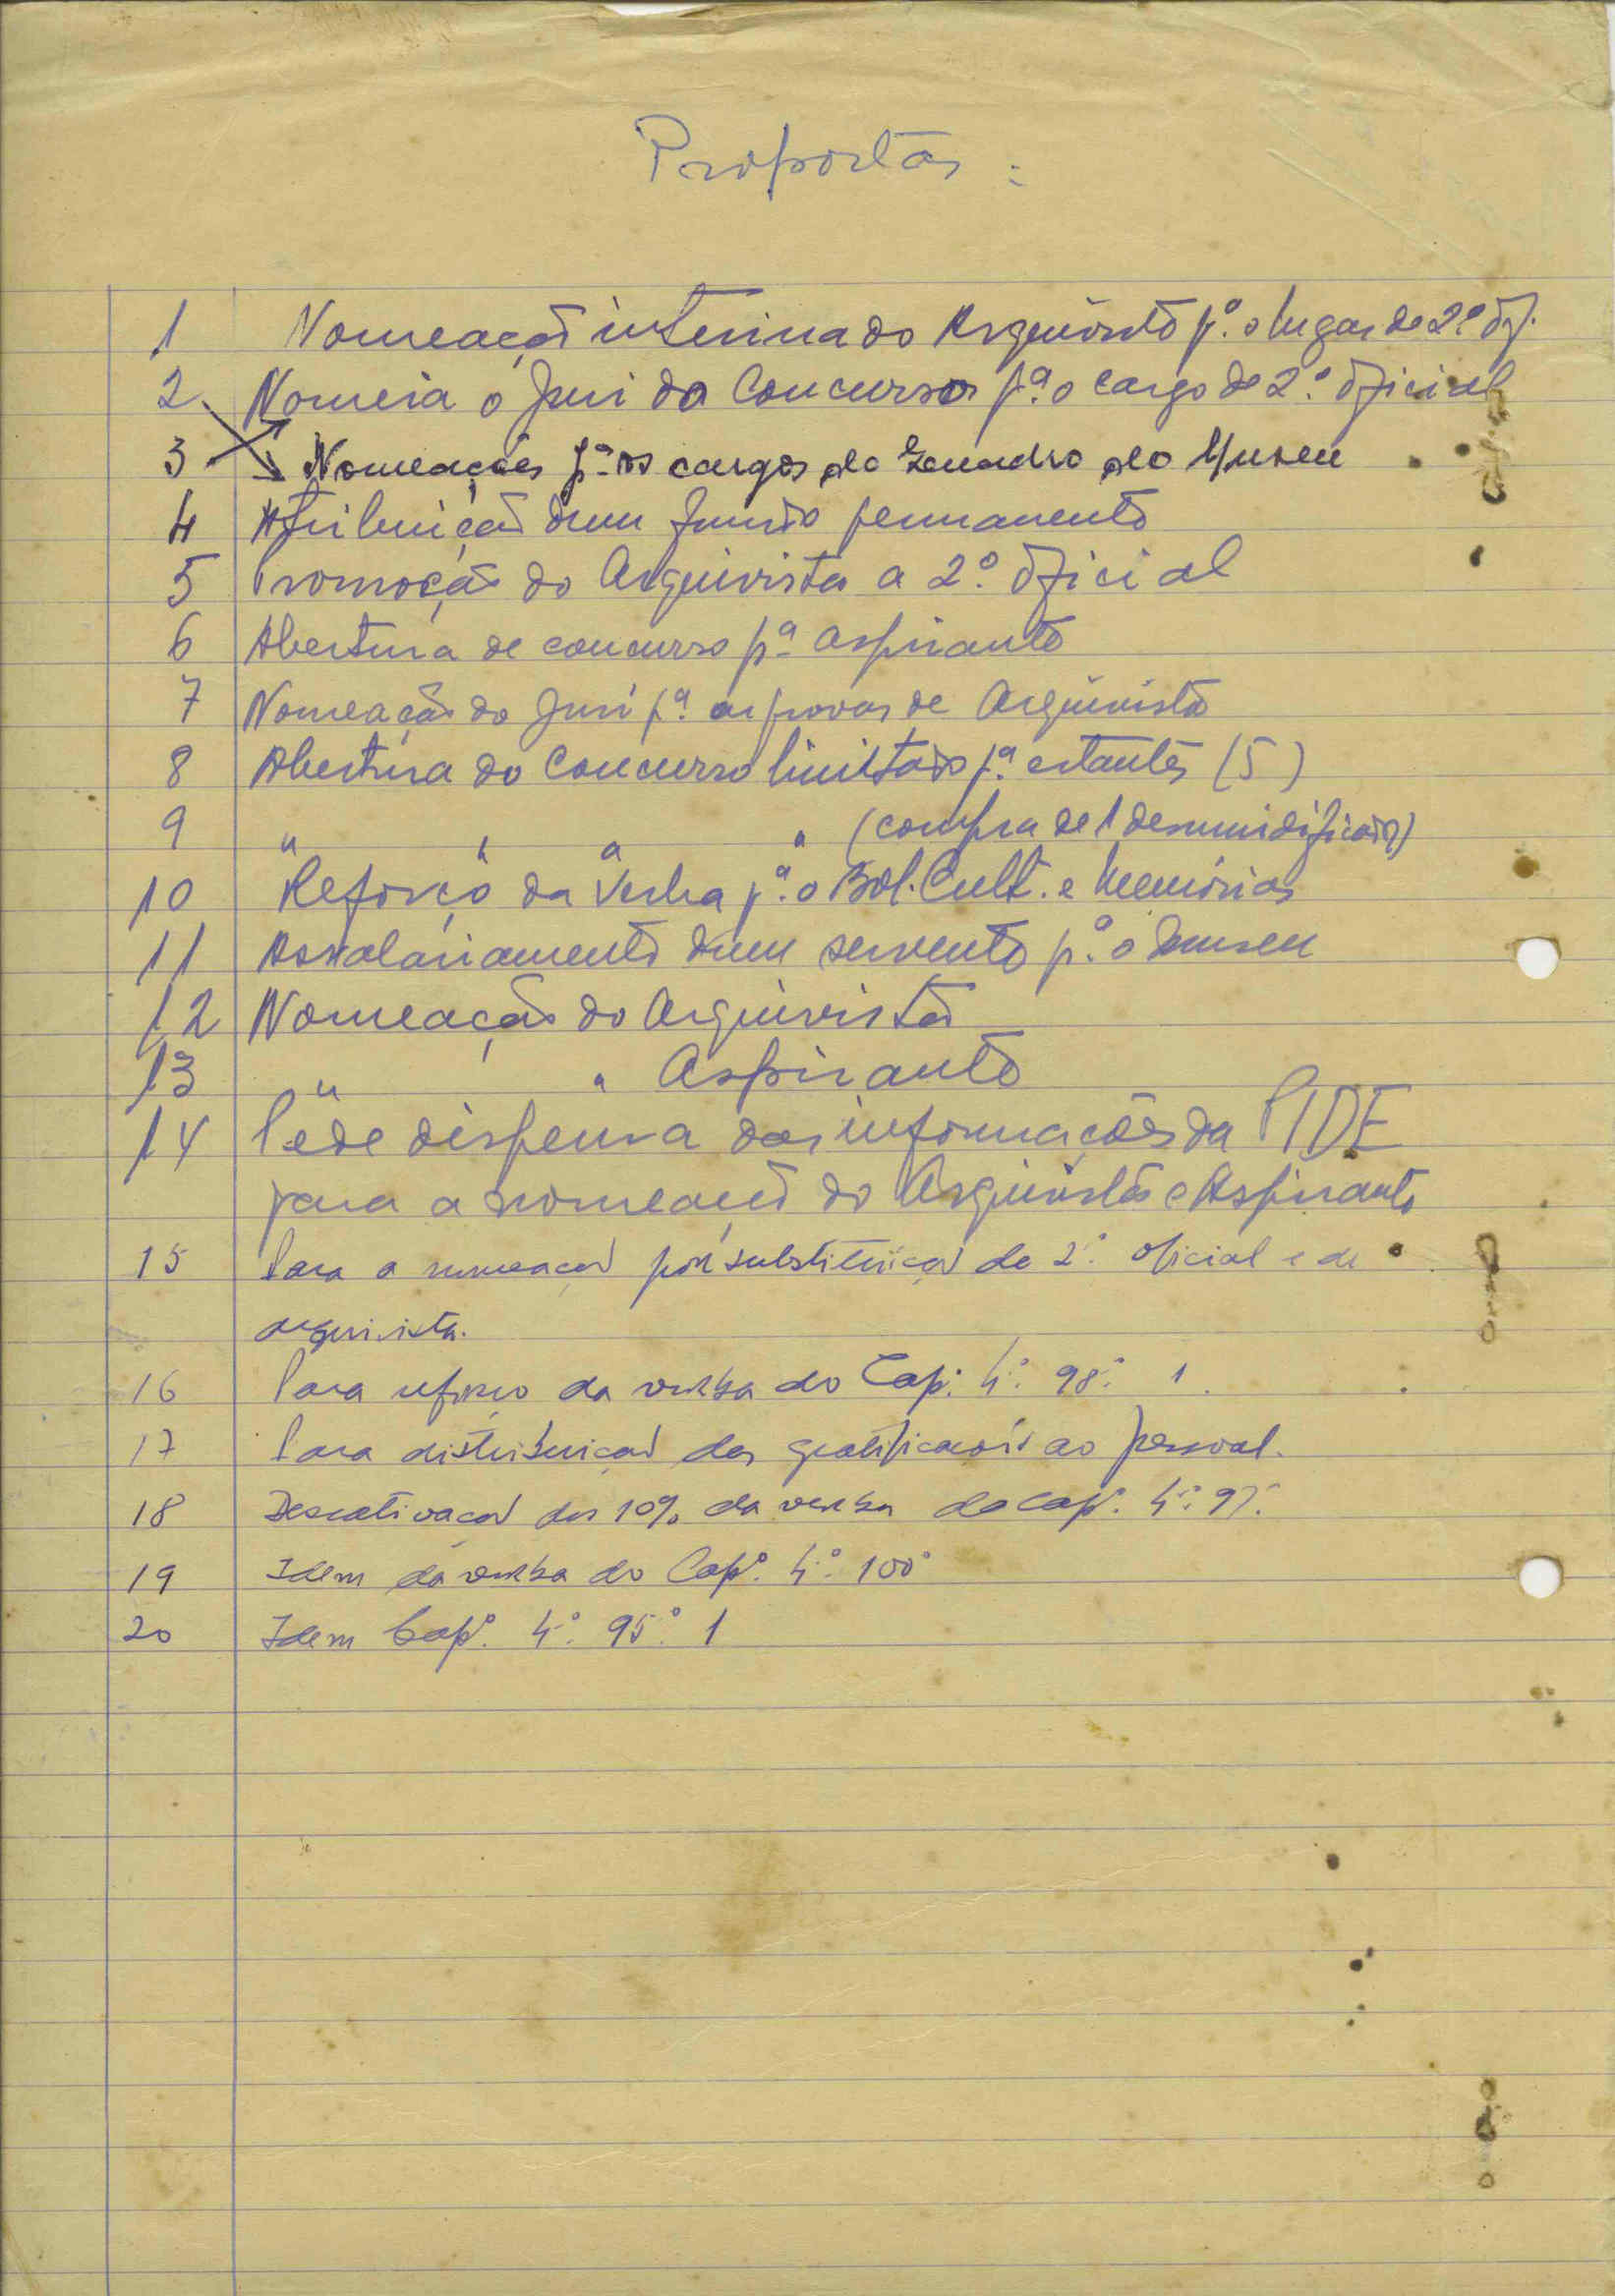 Propostas :
1 Nomeação interina do Arquivista p.ª o lugar de 2º of.
2 Nomeia o Juri do Concurso p.ª o cargo de 2.º oficial
3 Nomeações p.ª os cargos do Quadro do Museu
4 Atribuição dum fundo permanente
5 Promoção do Arquivista a 2.º oficial
6 Abertura de concurso p.ª aspirante
7 Nomeação do Juri p.ª as provas de Arquivista
8 Abertura do Concurso limitado p.ª estantes (5)
9 " " " " (compra de 1 desumidificador)
10 Reforço da Verba p.ª o Bol. Cult. e Memórias
11 Assalariamento dum servente p.ª o Museu
12 Nomeação do Arquivista
13 " " Aspirante
14 Péde dispensa das informações da PIDE
para a nomeação do Arquivista e Aspirante
15 Para a nomeação por substituição de 2.º oficial e de
arquivista.
16 Para reforço da verba do Cap.º 4.º 98.º 1.
17 Para distribuição das gratificações ao pessoal.
18 Descativação dos 10% da verba do Cap.º 4.º 97.º
19 Idem da verba do Cap.º 4.º 100º
20 Idem Cap.º 4.º 95.º 1